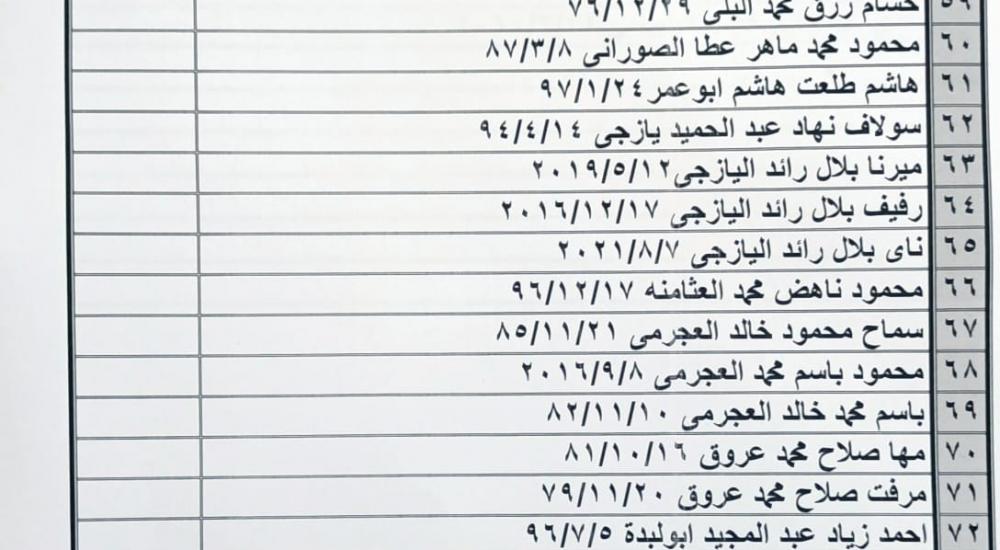 ٥٩ حسام رزق محمد البلى ٧٦/١٢/٢٩
٦٠ محمود محمد ماهر عطا الصورانى ٨٧/٣/٨
٦١ هاشم طلعت هاشم ابوعمر ٩٧/١/٢٤
٦٢ سولاف نهاد عبد الحميد يازجى ٩٤/٤/١٤
٦٣ ميرنا بلال رائد اليازجى ٢٠١٩/٥/١٢
٦٤ رفيف بلال رائد اليازجى ٢٠١٦/١٢/١٧
٦٥ ناى بلال رائد اليازجى ٢٠٢١/٨/٧
٦٦ محمود ناهض محمد العثامنه ٩٦/١٢/١٧
٦٧ سماح محمود خالد العجرمى ٨٥/١١/٢١
٦٨ محمود باسم محمد العجرمى ٢٠١٦/٩/٨
٦٩ باسم محمد خالد العجرمى ٨٢/١١/١٠
٧٠ مها صلاح محمد عروق ٨١/١٠/١٦
٧١ مرفت صلاح محمد عروق ٧٩/١١/٢٠
٧٢ احمد زياد عبد المجيد ابولبدة ٩٦/٧/٥